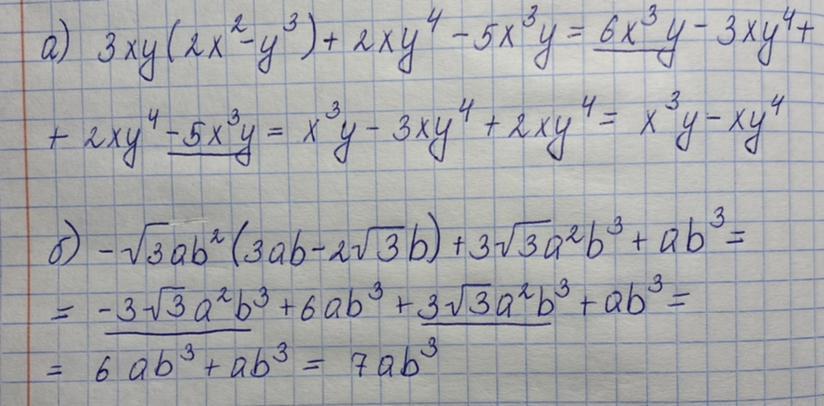 а) 3xy(2x²-y³)+2xy⁴-5x³y=6x³y-3xy⁴+
+2xy⁴-5x³y=x³y-3xy⁴+2xy⁴=x³y-xy⁴
б) -√3ab²(3ab-2√3b)+3√3a²b³+ab³=
=-3√3a²b³+6ab³+3√3a²b³+ab³=
=6ab³+ab³=7ab³